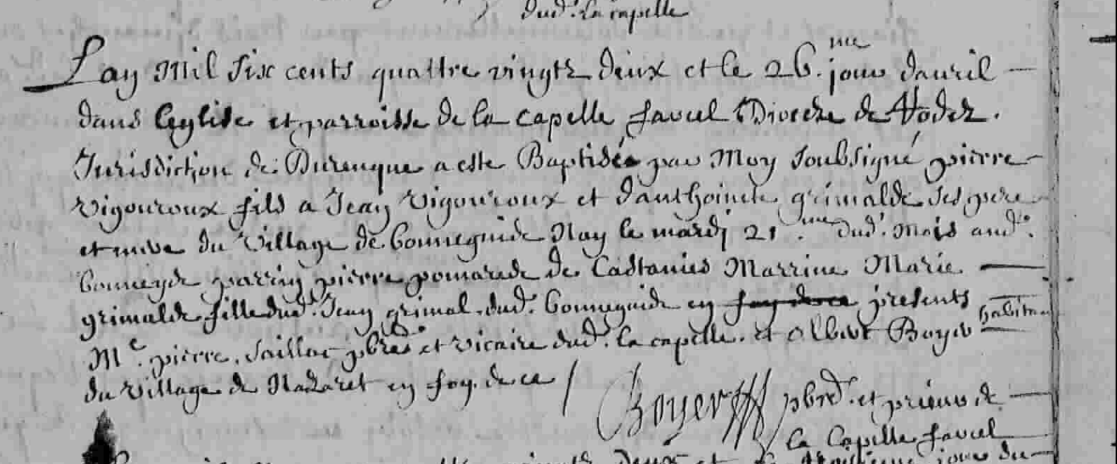 dud. la capelle
Lan mil six cents quattre vingtz deux et le 26.me jour dauril
dans leglise et parroisse de la capelle farcel Dioceze de Rodez.
Jurisdiction de Durenque a este Baptisé par moy soubsigné pierre
vigouroux fils a Jean vigouroux et danthoinete grimalde ses pere
et mere du village de bonneguide Nay le mardi 21.me dud. mois aud.
parrin pierre pomarede de Castanies Marrine Marie
grimalde fille dud. Jean grimal. dud. bonneguide en foy de ce presents
Me. pierre. Saillac pbre et vicaire dud. la capelle. et Albert Boyer habitan
du village de Nazaret en foy. de ce
Boyer pbre. et prieur de
la Capelle farcel
deux et le jour du